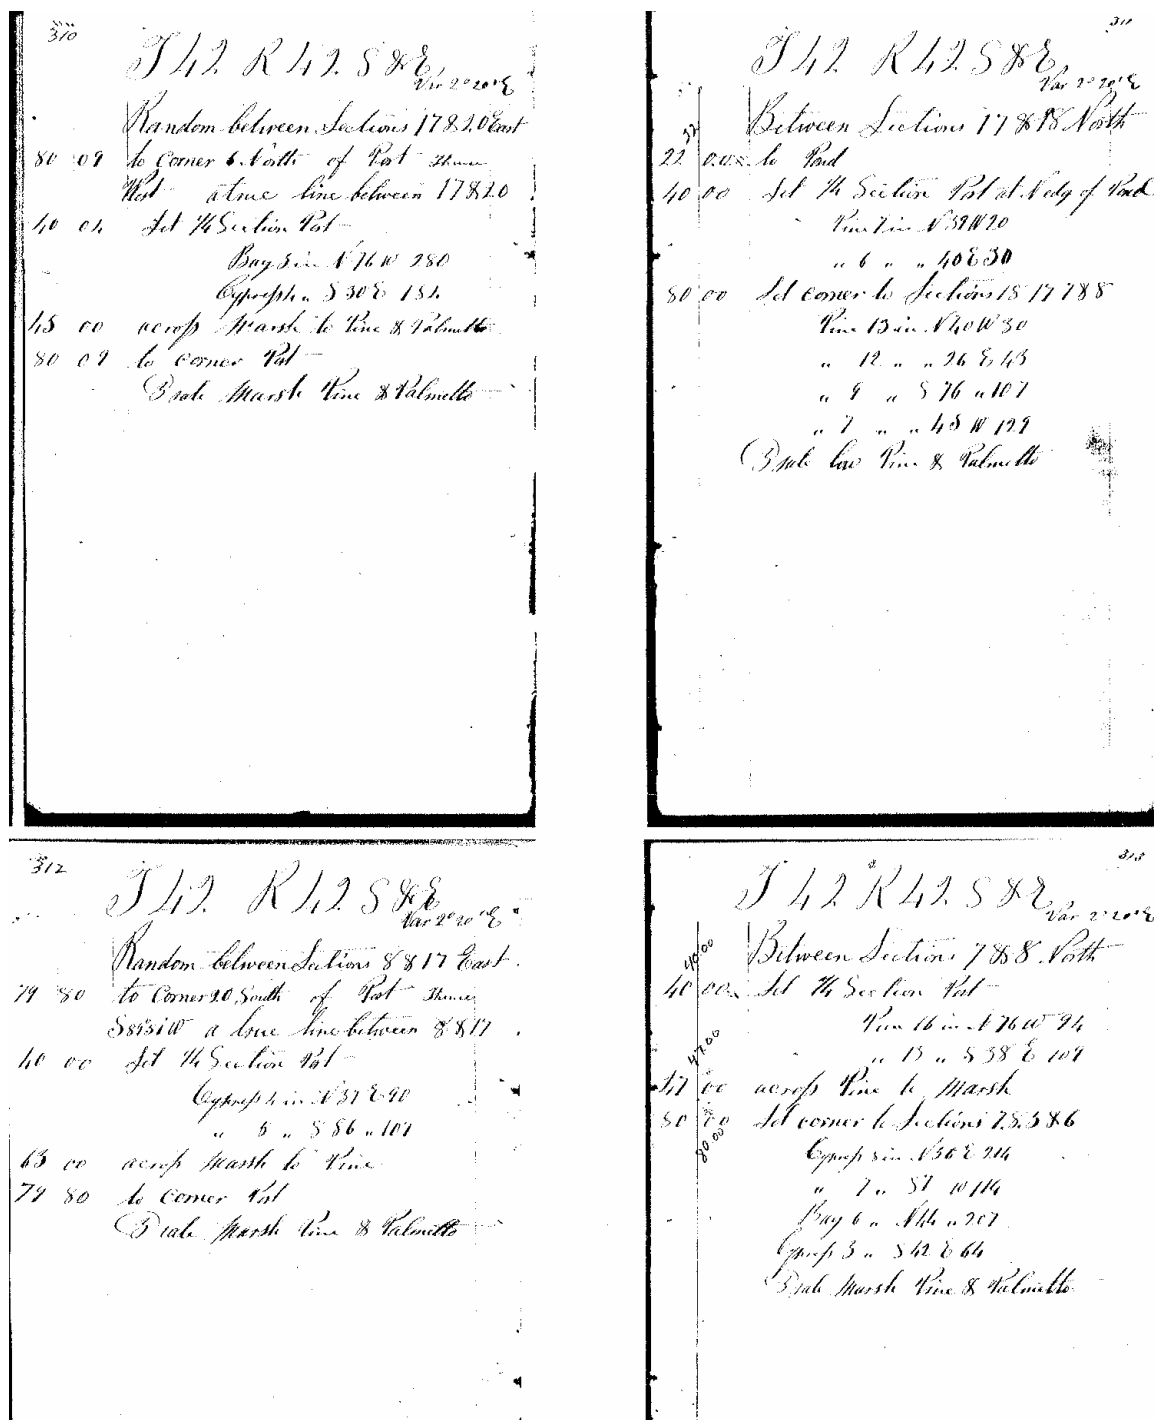 310
T 42 R 42 S & E
Var 2° 20' E
Random between Sections 17 & 20 East
80 09 to Corner 6 North of Post Thence
West a true line between 17 & 20
40 04 Set 1/4 Section Post
Bay 3 in N 76 W 280
Cypress 4 " S 30 E 184
45 00 across Marsh to Pine & Palmetto
80 09 to corner Post
3 rate Marsh Pine & Palmetto
311
T 42 R 42 S & E
Var 2° 20' E
Between Sections 17 & 18 North
22 00 to Pond
40 00 Set 1/4 Section Post at N edg of Pond
Pine 7 in N 39 W 20
" 6 " " 40 E 30
80 00 Set corner to Sections 18 17 7 & 8
Pine 13 in N 40 W 30
" 12 " " 26 E 43
" 9 " S 76 " 107
" 7 " " 48 W 129
3 rate low Pine & Palmetto
312
T 42 R 42 S & E
Var 2° 20' E
Random between Sections 8 & 17 East
79 80 to Corner 20 South of Post Thence
S 89 51 W a true line between 8 & 17
40 00 Set 1/4 Section Post
Cypress 4 in N 37 E 90
" 5 " S 86 " 107
63 00 across Marsh to Pine
79 80 to Corner Post
3 rate Marsh Pine & Palmetto
313
T 42 R 42 S & E
Var 2° 20' E
Between Sections 7 & 8 North
40.00
40 00 Set 1/4 Section Post
Pine 16 in N 76 W 94
" 13 " S 38 E 109
47.00
47 00 across Pine to Marsh
80 00 Set corner to Sections 7. 8. 5 & 6
80.00
Cypress 8 in N 56 E 214
" 7 " S 7 W 114
Bay 6 " N 44 " 207
Cypress 3 " S 42 E 64
3 rate Marsh Pine & Palmetto